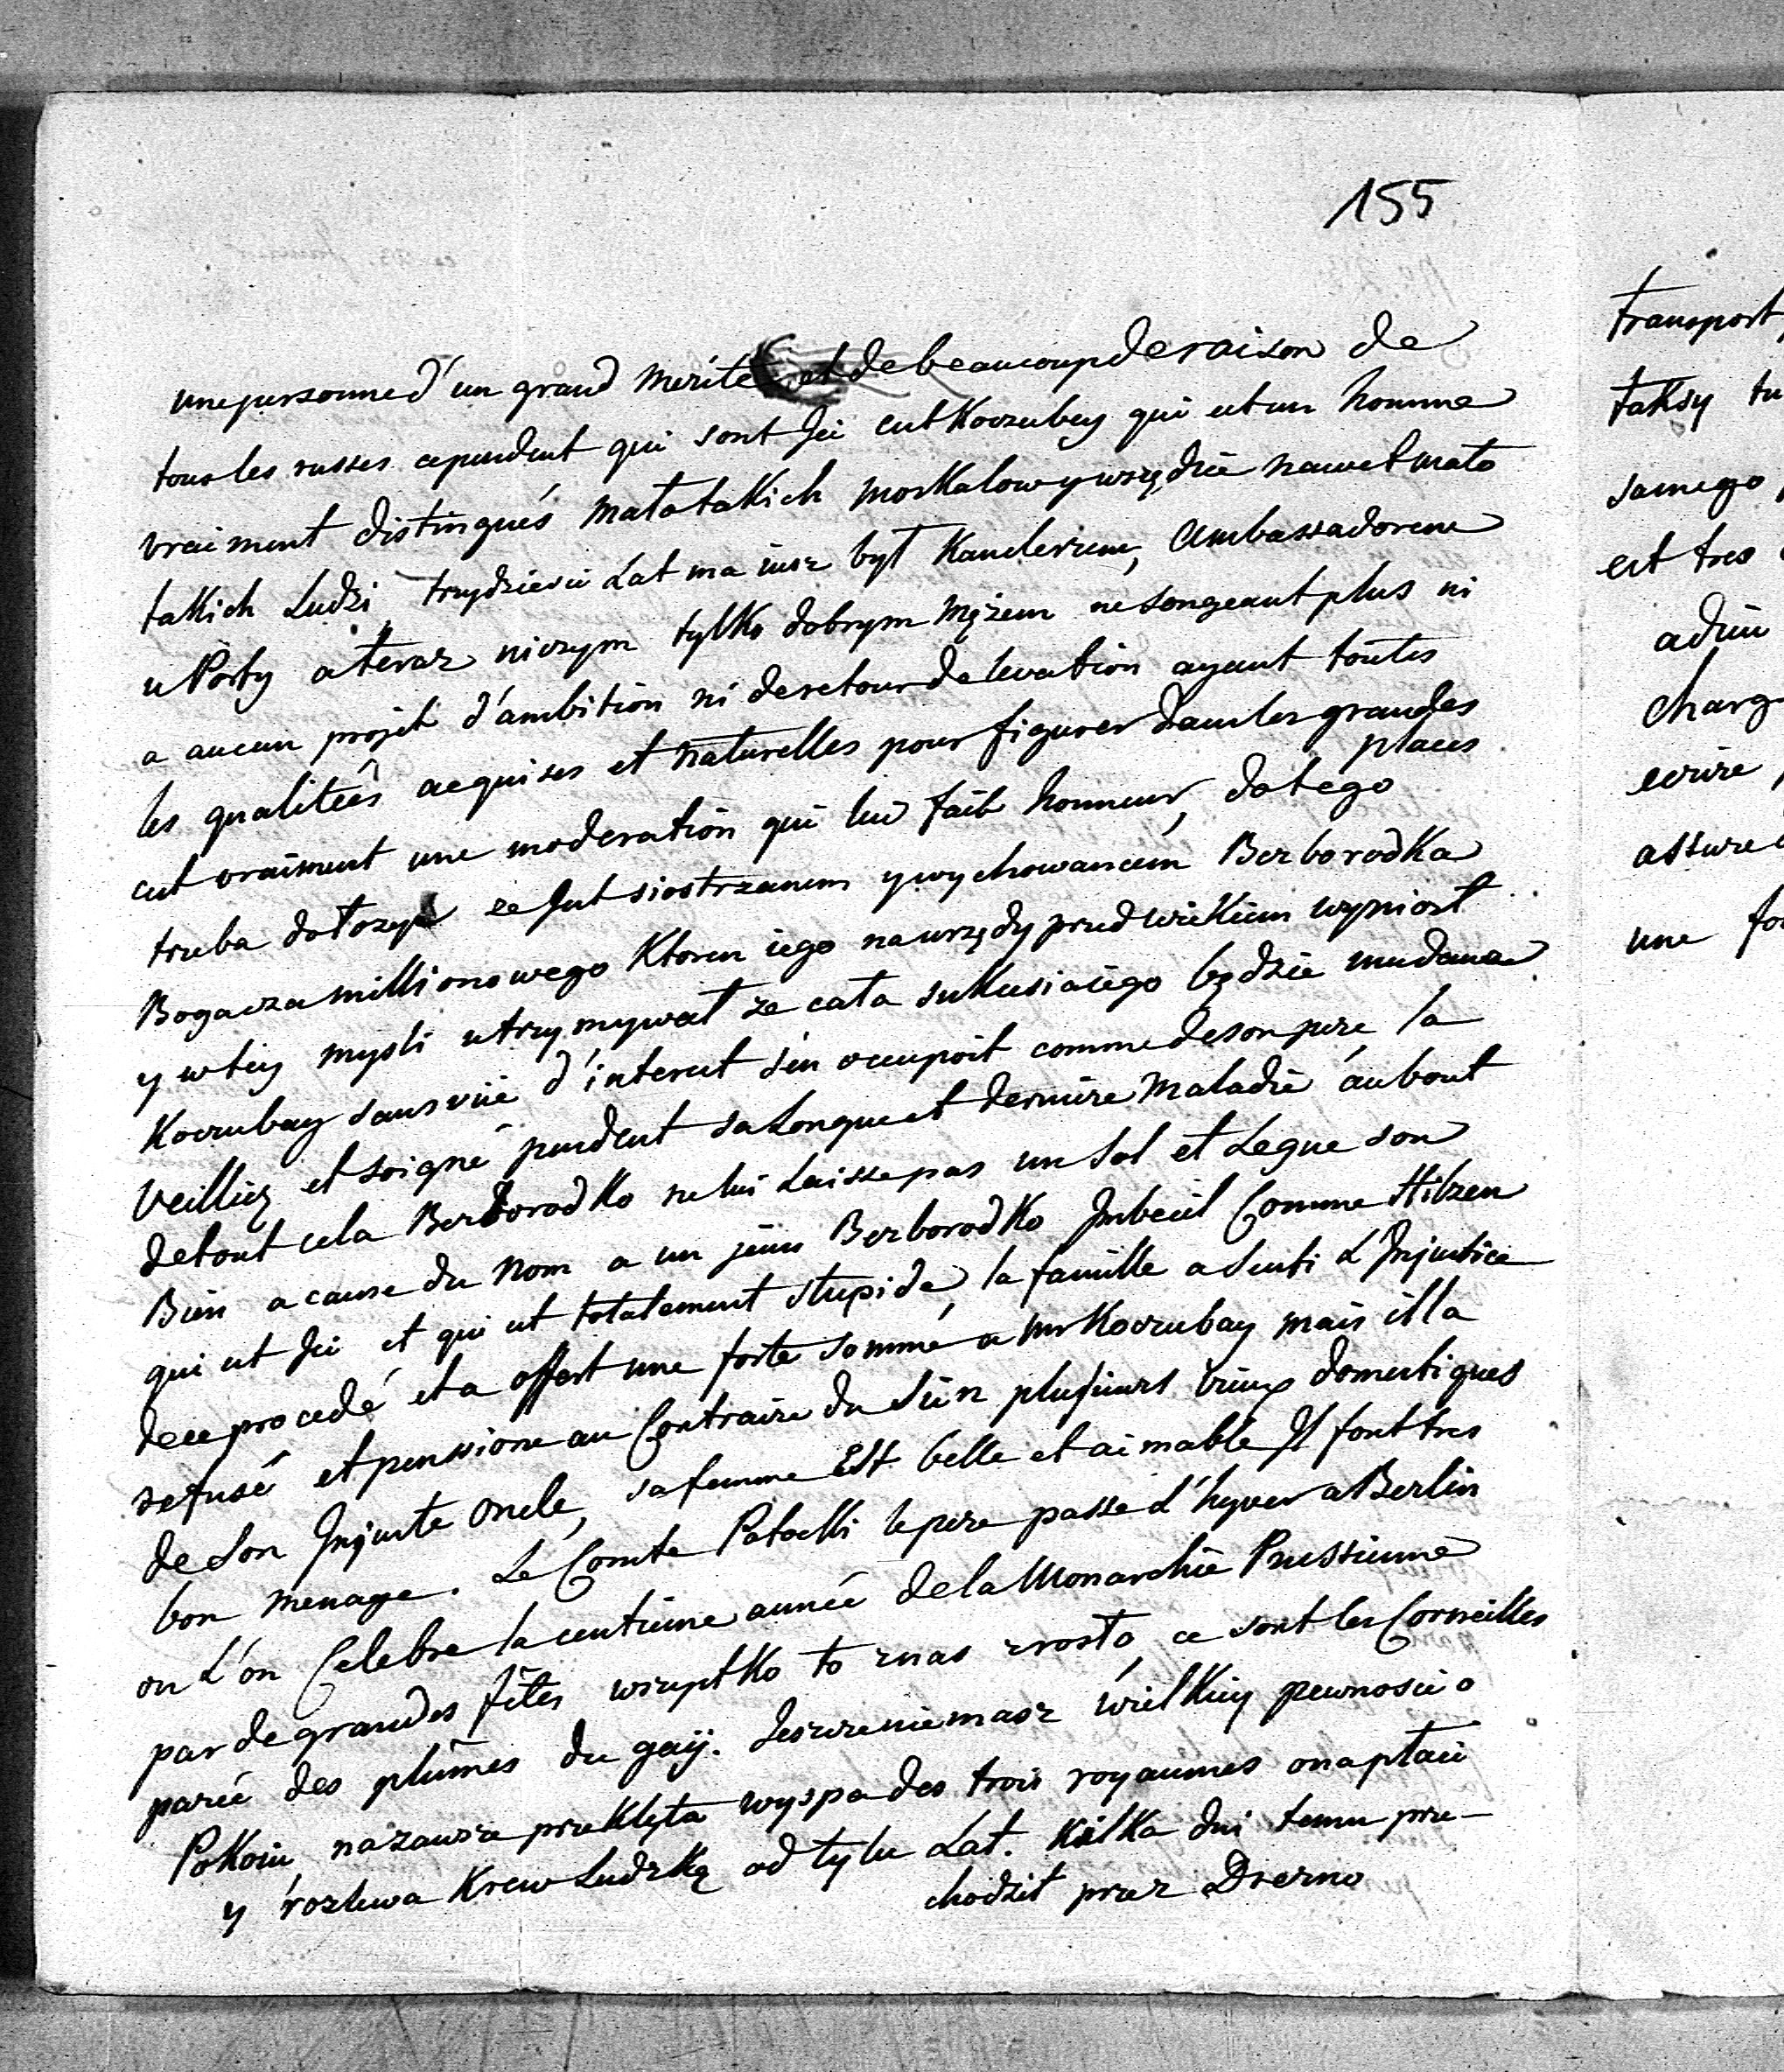 155
une personne d'un grand merite et de beaucoup de raison de
tous les russes cependent qui sont Jci cest Koczubey qui est un homme
vraiment distingués mało takich moskalow y wszędzie nawet mało
takich Ludzi, trzydziescie Lat ma iusz był Kanclerzem, Ambassadorem
u Porty a teraz niczym tylko dobrym Mężem ne songeant plus ni
a aucun projet d'ambition ni de retour d'elevation ayant toutes
les qualiteés acquises et naturelles pour figurer dans les grandes
places
cest vraiment une moderation qui lui fait honneur, do tego
trzeba dołozyc ze Jest siostrzanem y wychowancem Bezborodka
Bogacza millionowego Ktoren iego na urzędy pred wiekiem wyniosł
y w tey mysli utrzymywał ze cała sukcesia iego będzie mu dana
Koczubay sans vüe d'interest s'en occupoit comme de son pere, la
Veilliez et soigné pendent sa Longue et derniere Maladie áu bout
de tout cela Bezborodko ne lui Laisse pas un Sol et Legue son
Bien a cause du Nom a un jeune Bezborodko Jmbecil Comme Hilzen
qui est Jci et qui est totalement stupide, la famille a senti L'Jnjustice
de ce procedé et a offert une forte somme a Mr Koczubay mais il la
refusé et penssione au Contraire du Sien plusieurs vieux domestiques
de Son Jnjuste oncle, sa femme Est belle et aimable Jl font tres
bon menage. Le Comte Potocki le pere passe L'hyver a Berlin
ou L'on Celebre la centieme année de la Monarchie Prussienne
par de grandes fêtes wszystko to z nas zrosło, ce sont les Corneilles
parée des plumes du gaÿ. Jeszcze nie masz wielkiey pewnoscie o
Pokoiu, na zawsze preklęta wyspa des trois royaumes ona płaci
y rozlewa Krew Ludzką od tylu Lat. Kilka dni temu prze-
chodził przez Drezno
transport
taksy tu
samego
est tres
adieu
charg
ecrire
assure
une fo